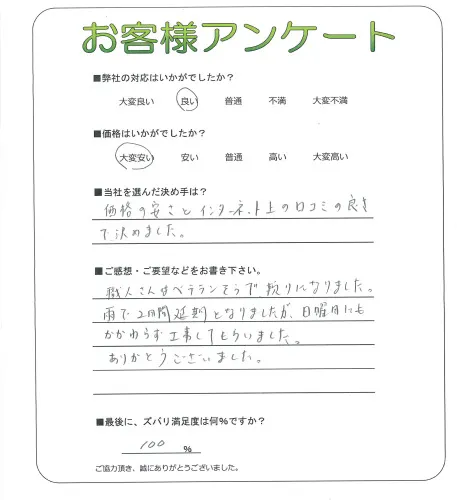 お客様アンケート
■弊社の対応はいかがでしたか？
大変良い 良い 普通 不満 大変不満
■価格はいかがでしたか？
大変安い 安い 普通 高い 大変高い
■当社を選んだ決め手は？
価格の安さとインターネット上の口コミの良さ
で決めました。
■ご感想・ご要望などをお書き下さい。
職人さんはベテランそうで、頼りになりました。
雨で2日間延期となりましたが、日曜日にも
かかわらず工事してもらいました。
ありがとうございました。
■最後に、ズバリ満足度は何%ですか？
100 %
ご協力頂き、誠にありがとうございました。